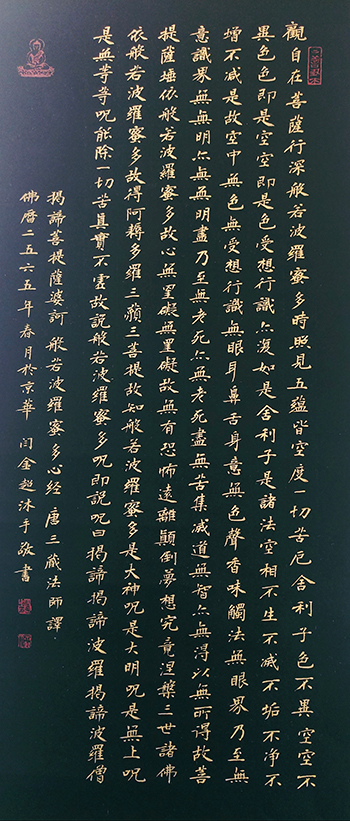 觀自在菩薩行深般若波羅蜜多時照見五蘊皆空度一切苦厄舍利子色不異空空不
異色色即是空空即是色受想行識亦復如是舍利子是諸法空相不生不滅不垢不净不
增不減是故空中無色無受想行識無眼耳鼻舌身意無色聲香味觸法無眼界乃至無
意識界無無明亦無無明盡乃至無老死亦無老死盡無苦集滅道無智亦無得以無所得故菩
提薩埵依般若波羅蜜多故心無罣礙無罣礙故無有恐怖遠離顛倒夢想究竟涅槃三世諸佛
依般若波羅蜜多故得阿耨多羅三藐三菩提故知般若波羅蜜多是大神呪是大明呪是無上呪
是無等等呪能除一切苦真實不虛故說般若波羅蜜多呪即說呪曰揭諦揭諦波羅揭諦波羅僧
揭諦菩提薩婆訶 般若波羅蜜多心經 唐三藏法師譯
佛曆二五六五年春月於京華 闫金超沐手敬書